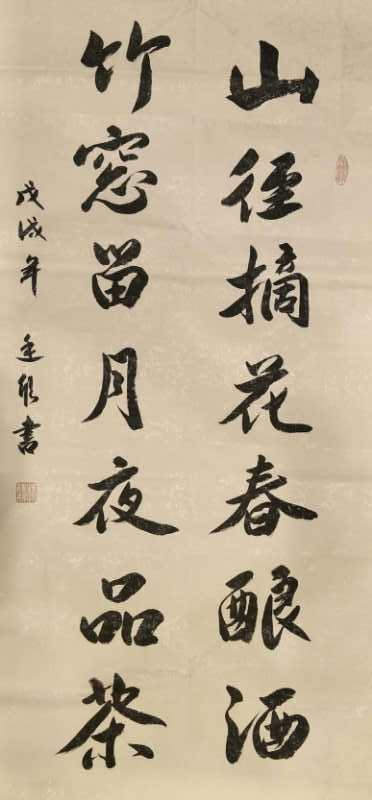 山径摘花春酿酒
竹窓留月夜品茶
戊戌年
书